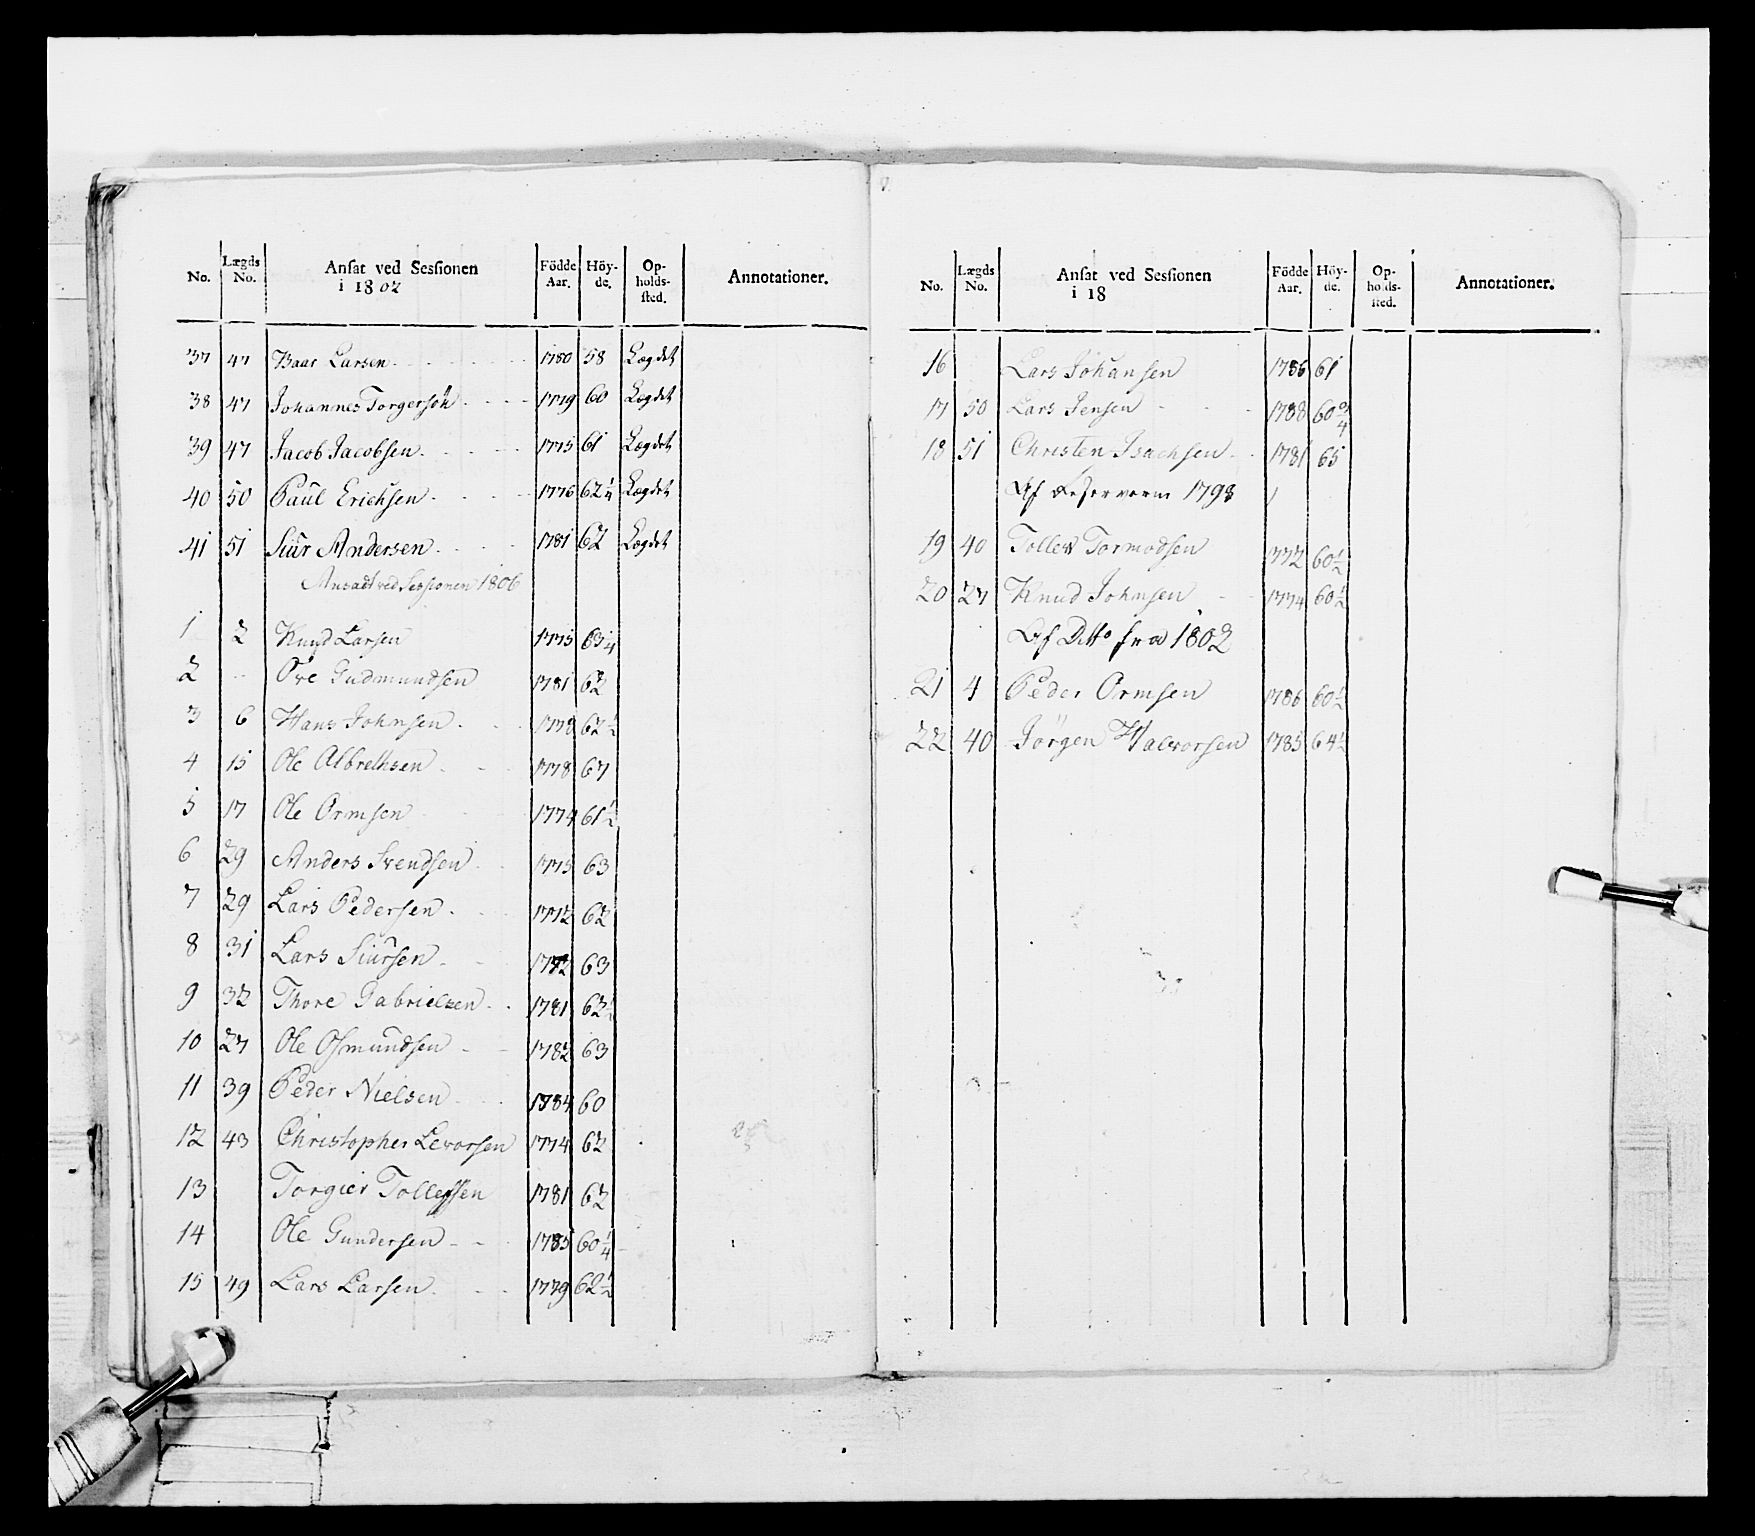 No. Lægds No. Ansat ved Sessionen i 1802 Födde Aar. Höyde. Opholdssted. Annotationer.
37 47 Baar Larsen 1780 58 Lægdet
38 47 Johannes Torgersön 1779 60 Lægdet
39 47 Jacob Jacobsen 1775 61 Lægdet
40 50 Paul Erichsen 1776 62 1/4 Lægdet
41 51 Siur Andersen 1781 62 Lægdet
Ansadt ved Sessionen 1806
1 2 Knud Larsen 1775 63 1/4
2 .. Ove Gudmundsen 1781 62
3 6 Hans Johnsen 1778 62 1/2
4 15 Ole Albrethsen 1778 67
5 17 Ole Ormsen 1774 61 1/2
6 29 Anders Svendsen 1775 63
7 29 Lars Pedersen 1772 62
8 31 Lars Siursen 1772 63
9 32 Thore Gabrielsen 1781 63 1/2
10 27 Ole Osmundsen 1782 63
11 39 Peder Nielsen 1784 60
12 43 Christopher Levorsen 1774 62
13 Torgier Tollefsen 1781 62
14 Ole Gundersen 1785 60 1/4
15 49 Lars Larsen 1779 62 1/2
No. Lægds No. Ansat ved Sessionen i 18 Födde Aar. Höyde. Opholdssted. Annotationer.
16 Lars Johansen 1786 61
17 50 Lars Jensen 1788 60 3/4
18 51 Christen Isachsen 1781 65
Af Reserverne 1798
19 40 Tollev Tormodsen 1772 60 1/2
20 27 Knud Johnsen 1774 60 1/2
Af Ditto fra 1802
21 4 Peder Ormsen 1786 60 1/2
22 40 Jörgen Halvorsen 1785 64 1/2